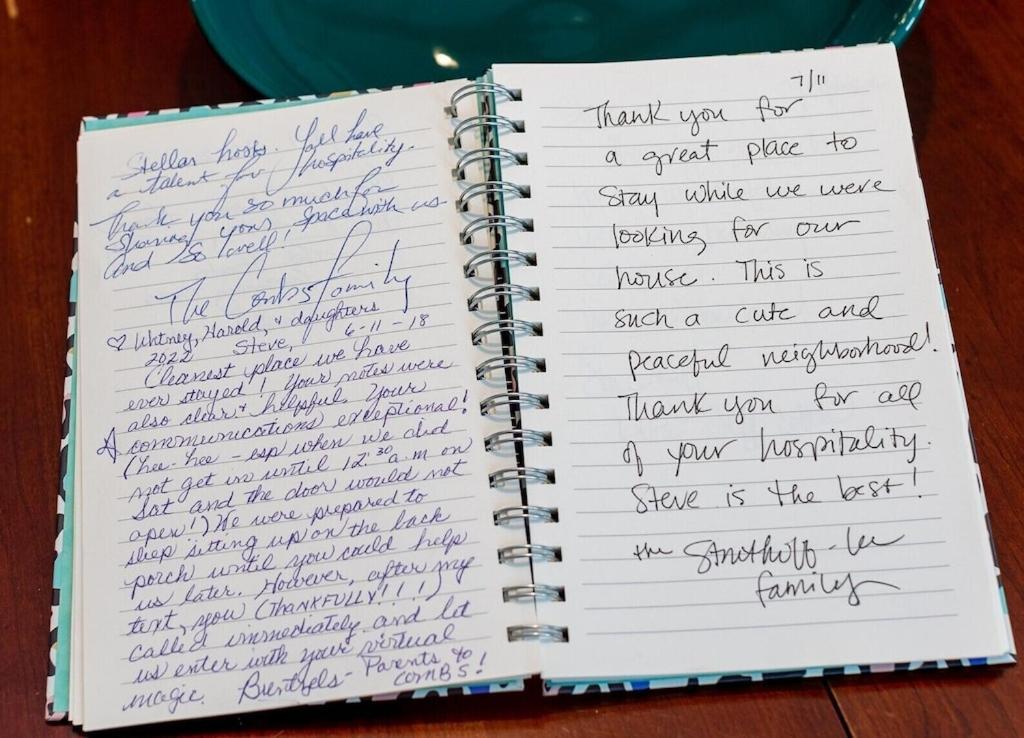 Stellar hosts. Y'all have
a talent for hospitality.
Thank you so much for
Sharing your space with us
and so well!
The Combs Family
♡ Whitney, Harold, + daughters
2022 Steve, 6-11-18
Cleanest place we have
ever stayed! Your notes were
also clear + helpful. Your
communications exceptional!
(hee-hee - esp when we did
not get in until 12:30 a.m on
Sat and the door would not
open!) We were prepared to
sleep sitting up on the back
porch until you could help
us later. However, after my
text, you (THANKFULLY!!!!)
called immediately and let
us enter with your virtual
magic. Parents to
COMBS!
7/11
Thank you for
a great place to
stay while we were
looking for our
house. This is
such a cute and
peaceful neighborhood!
Thank you for all
of your hospitality.
Steve is the best!
the
family